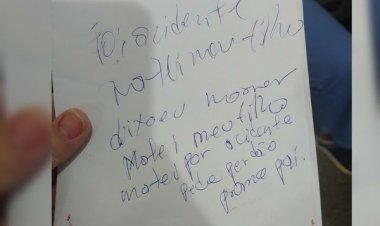 Foi acidente
matei meu filho
dixaeu morrer
Matei meu filho
matei por acidente
pede perdão
prama pai.